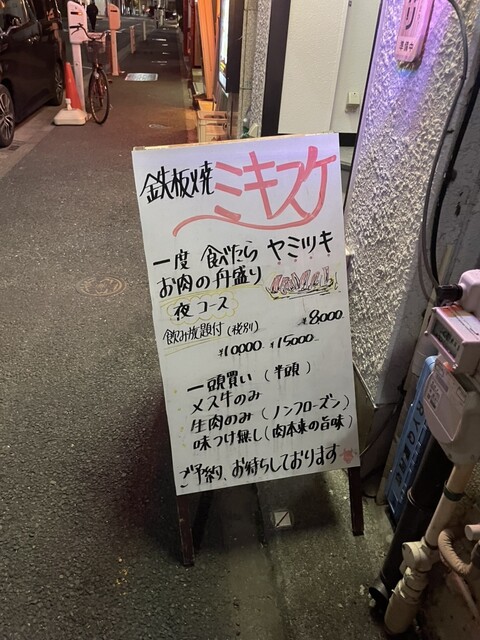 鉄板焼 ミキスケ
一度 食べたら ヤミツキ
お肉の舟盛り
夜コース
飲み放題付（税別） ¥8,000
¥10,000 ¥15,000
一頭買い（半頭）
メス牛のみ
生肉のみ（ノンフローズン）
味つけ無し（肉本来の旨味）
ご予約、お待ちしております
準備中